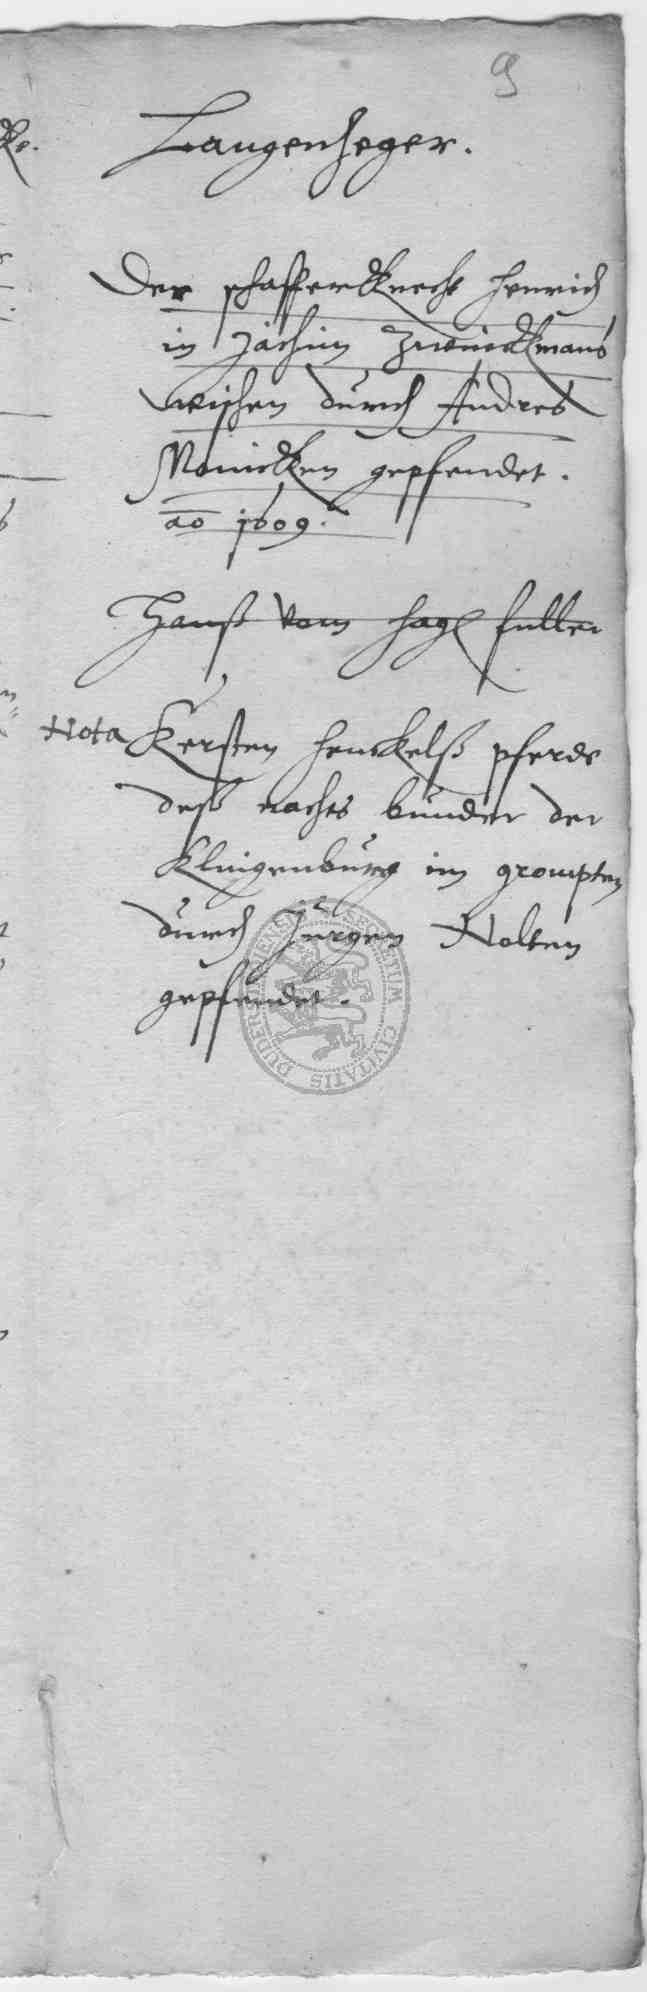 9
Langenheger.
Der schafferknecht Henrich
in Jachim Zwenckmans
wischen durch Andres
Monicken gepfendet.
ao 1609.
Hanß vom Hagen fuller
Nota Kersten Henckelß pferde
deß nachts bunder der
Klingenburg im grompten
durch Jurgen Nolten
gepfendet.
SECRETUM CIVITATIS DUDERSTADENSIS